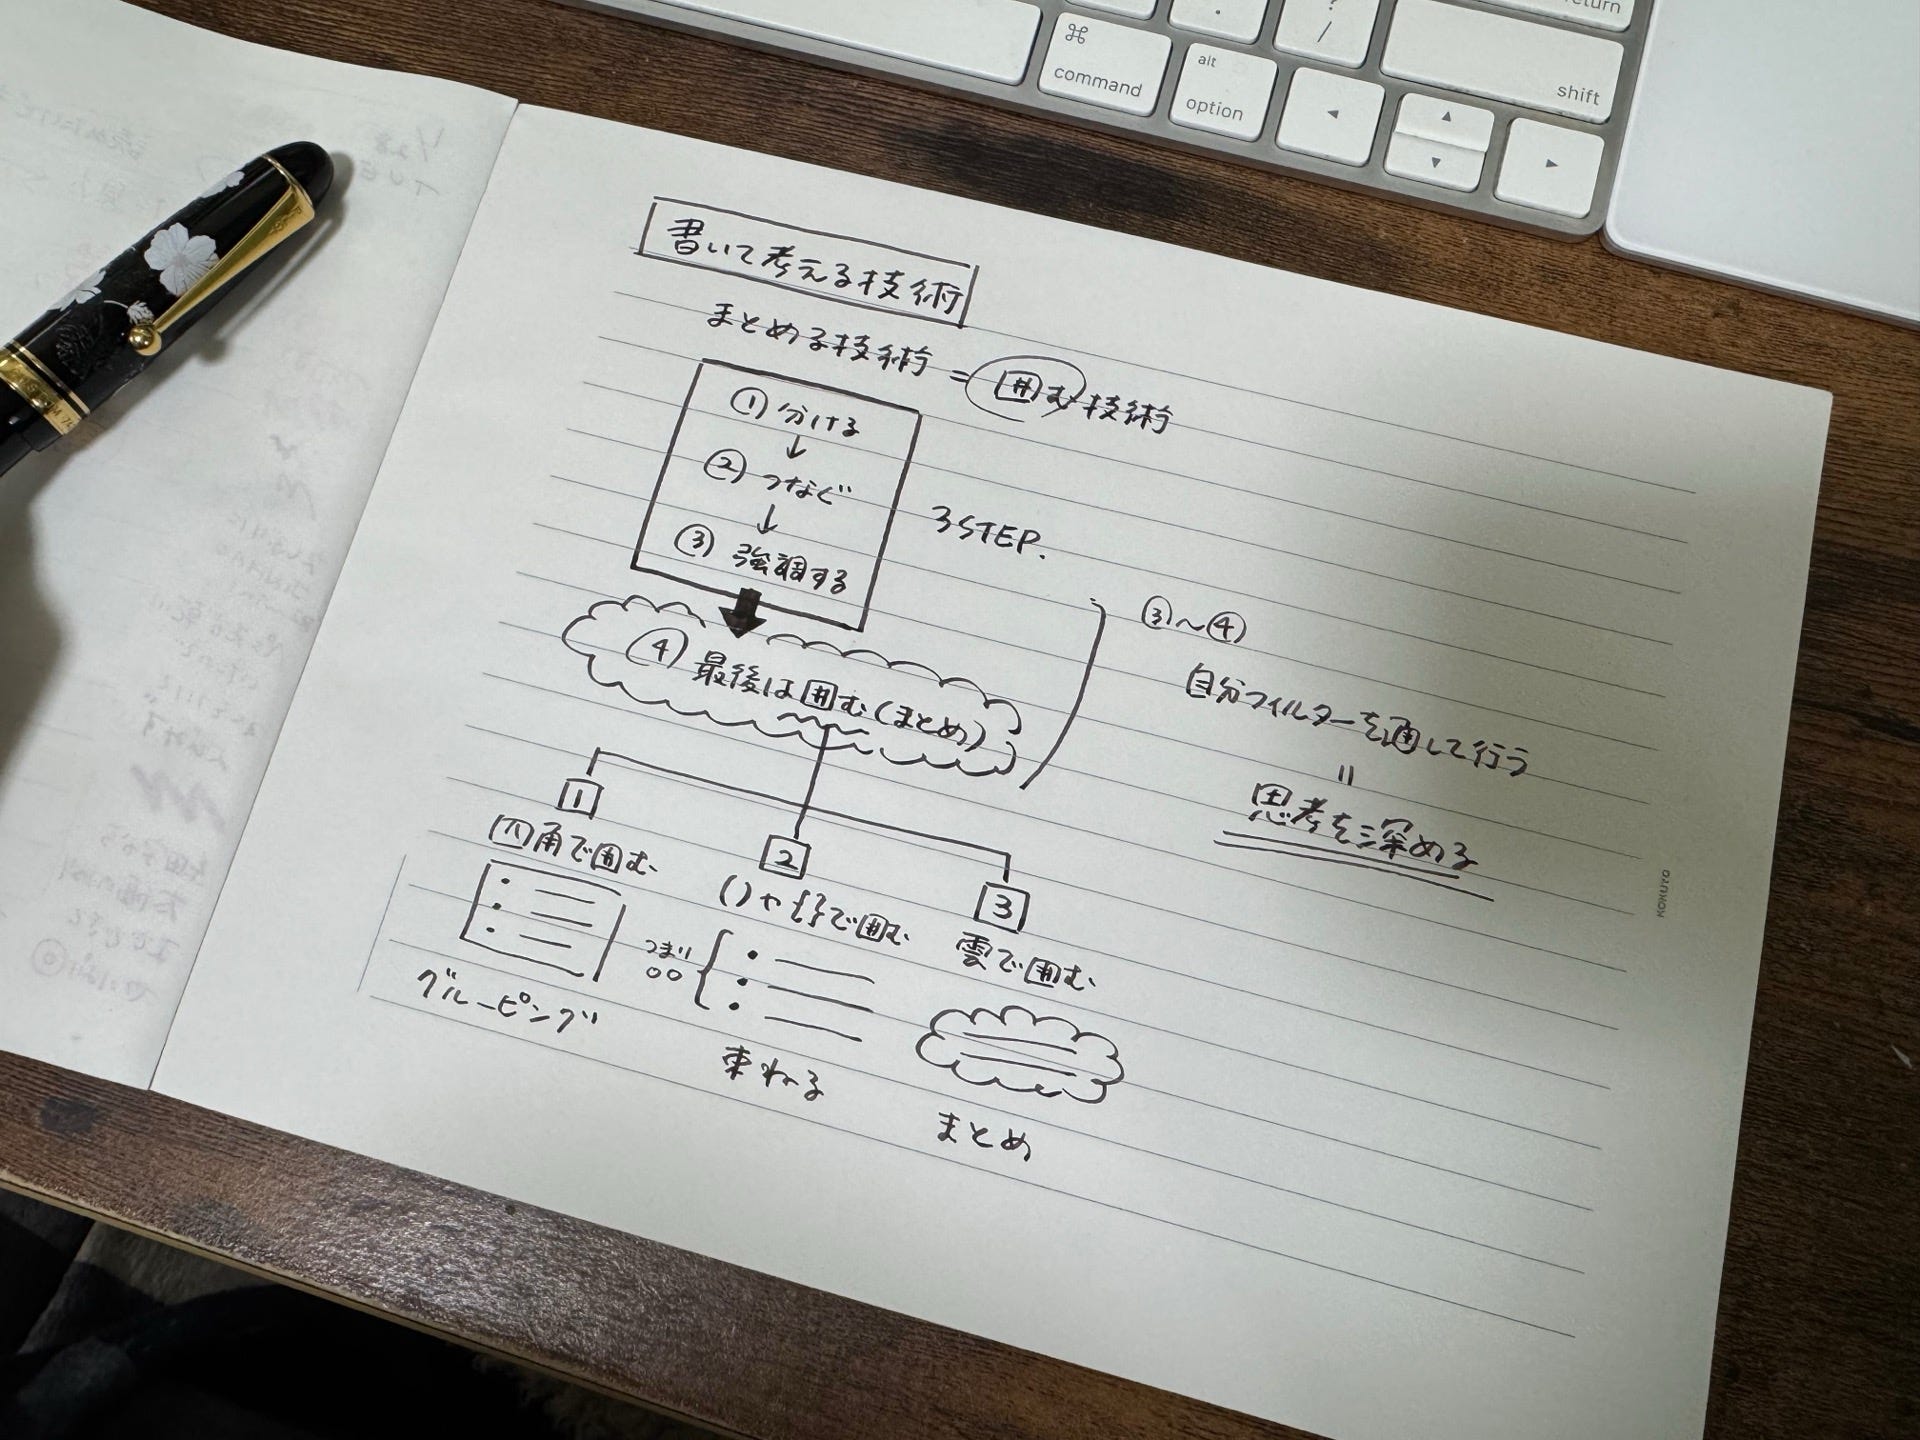 return
⌘
command
alt
option
?
/
shift
書いて考える技術
まとめる技術 = 囲む技術
① 分ける
↓
② つなぐ
↓
③ 強調する
3 STEP.
④ 最後は囲む(まとめ)
③〜④
自分フィルターを通して行う
=
思考を深める
1
四角で囲む
グルーピング
2
()や{}で囲む
つまり
○○
束ねる
3
雲で囲む
まとめ
KOKUYO